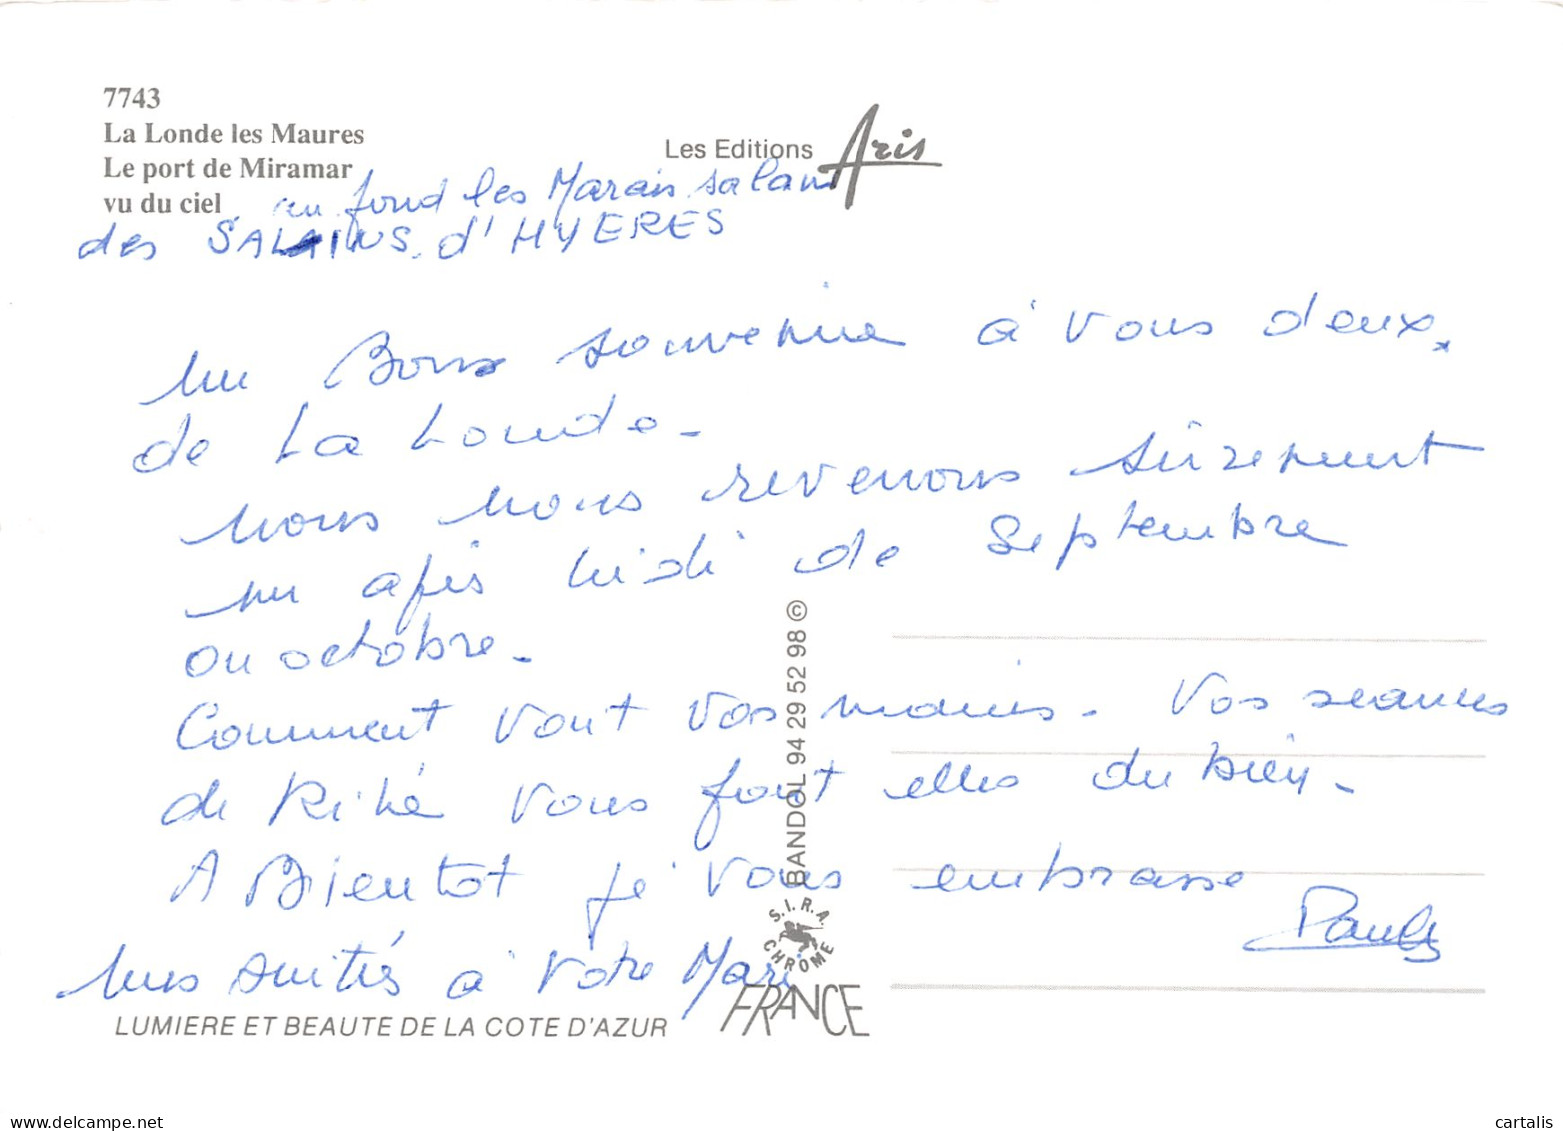 7743
La Londe les Maures
Le port de Miramar
vu du ciel
Les Editions Aris
au fond les Marais salans
des SALINS d'HYERES
un Bons souvenir à Vous deux.
de La Londe -
nous nous revenons sûrement
un après midi de Septembre
ou octobre -
Comment vont vos mains - Vos seances
de Kiné vous font elles du bien -
A Bientot je vous embrasse
mes amitiés à Votre Mari
BANDOL 94 29 52 98 ©
S.I.R.A.
CHROME
FRANCE
LUMIERE ET BEAUTE DE LA COTE D'AZUR
cartalis
www.delcampe.net